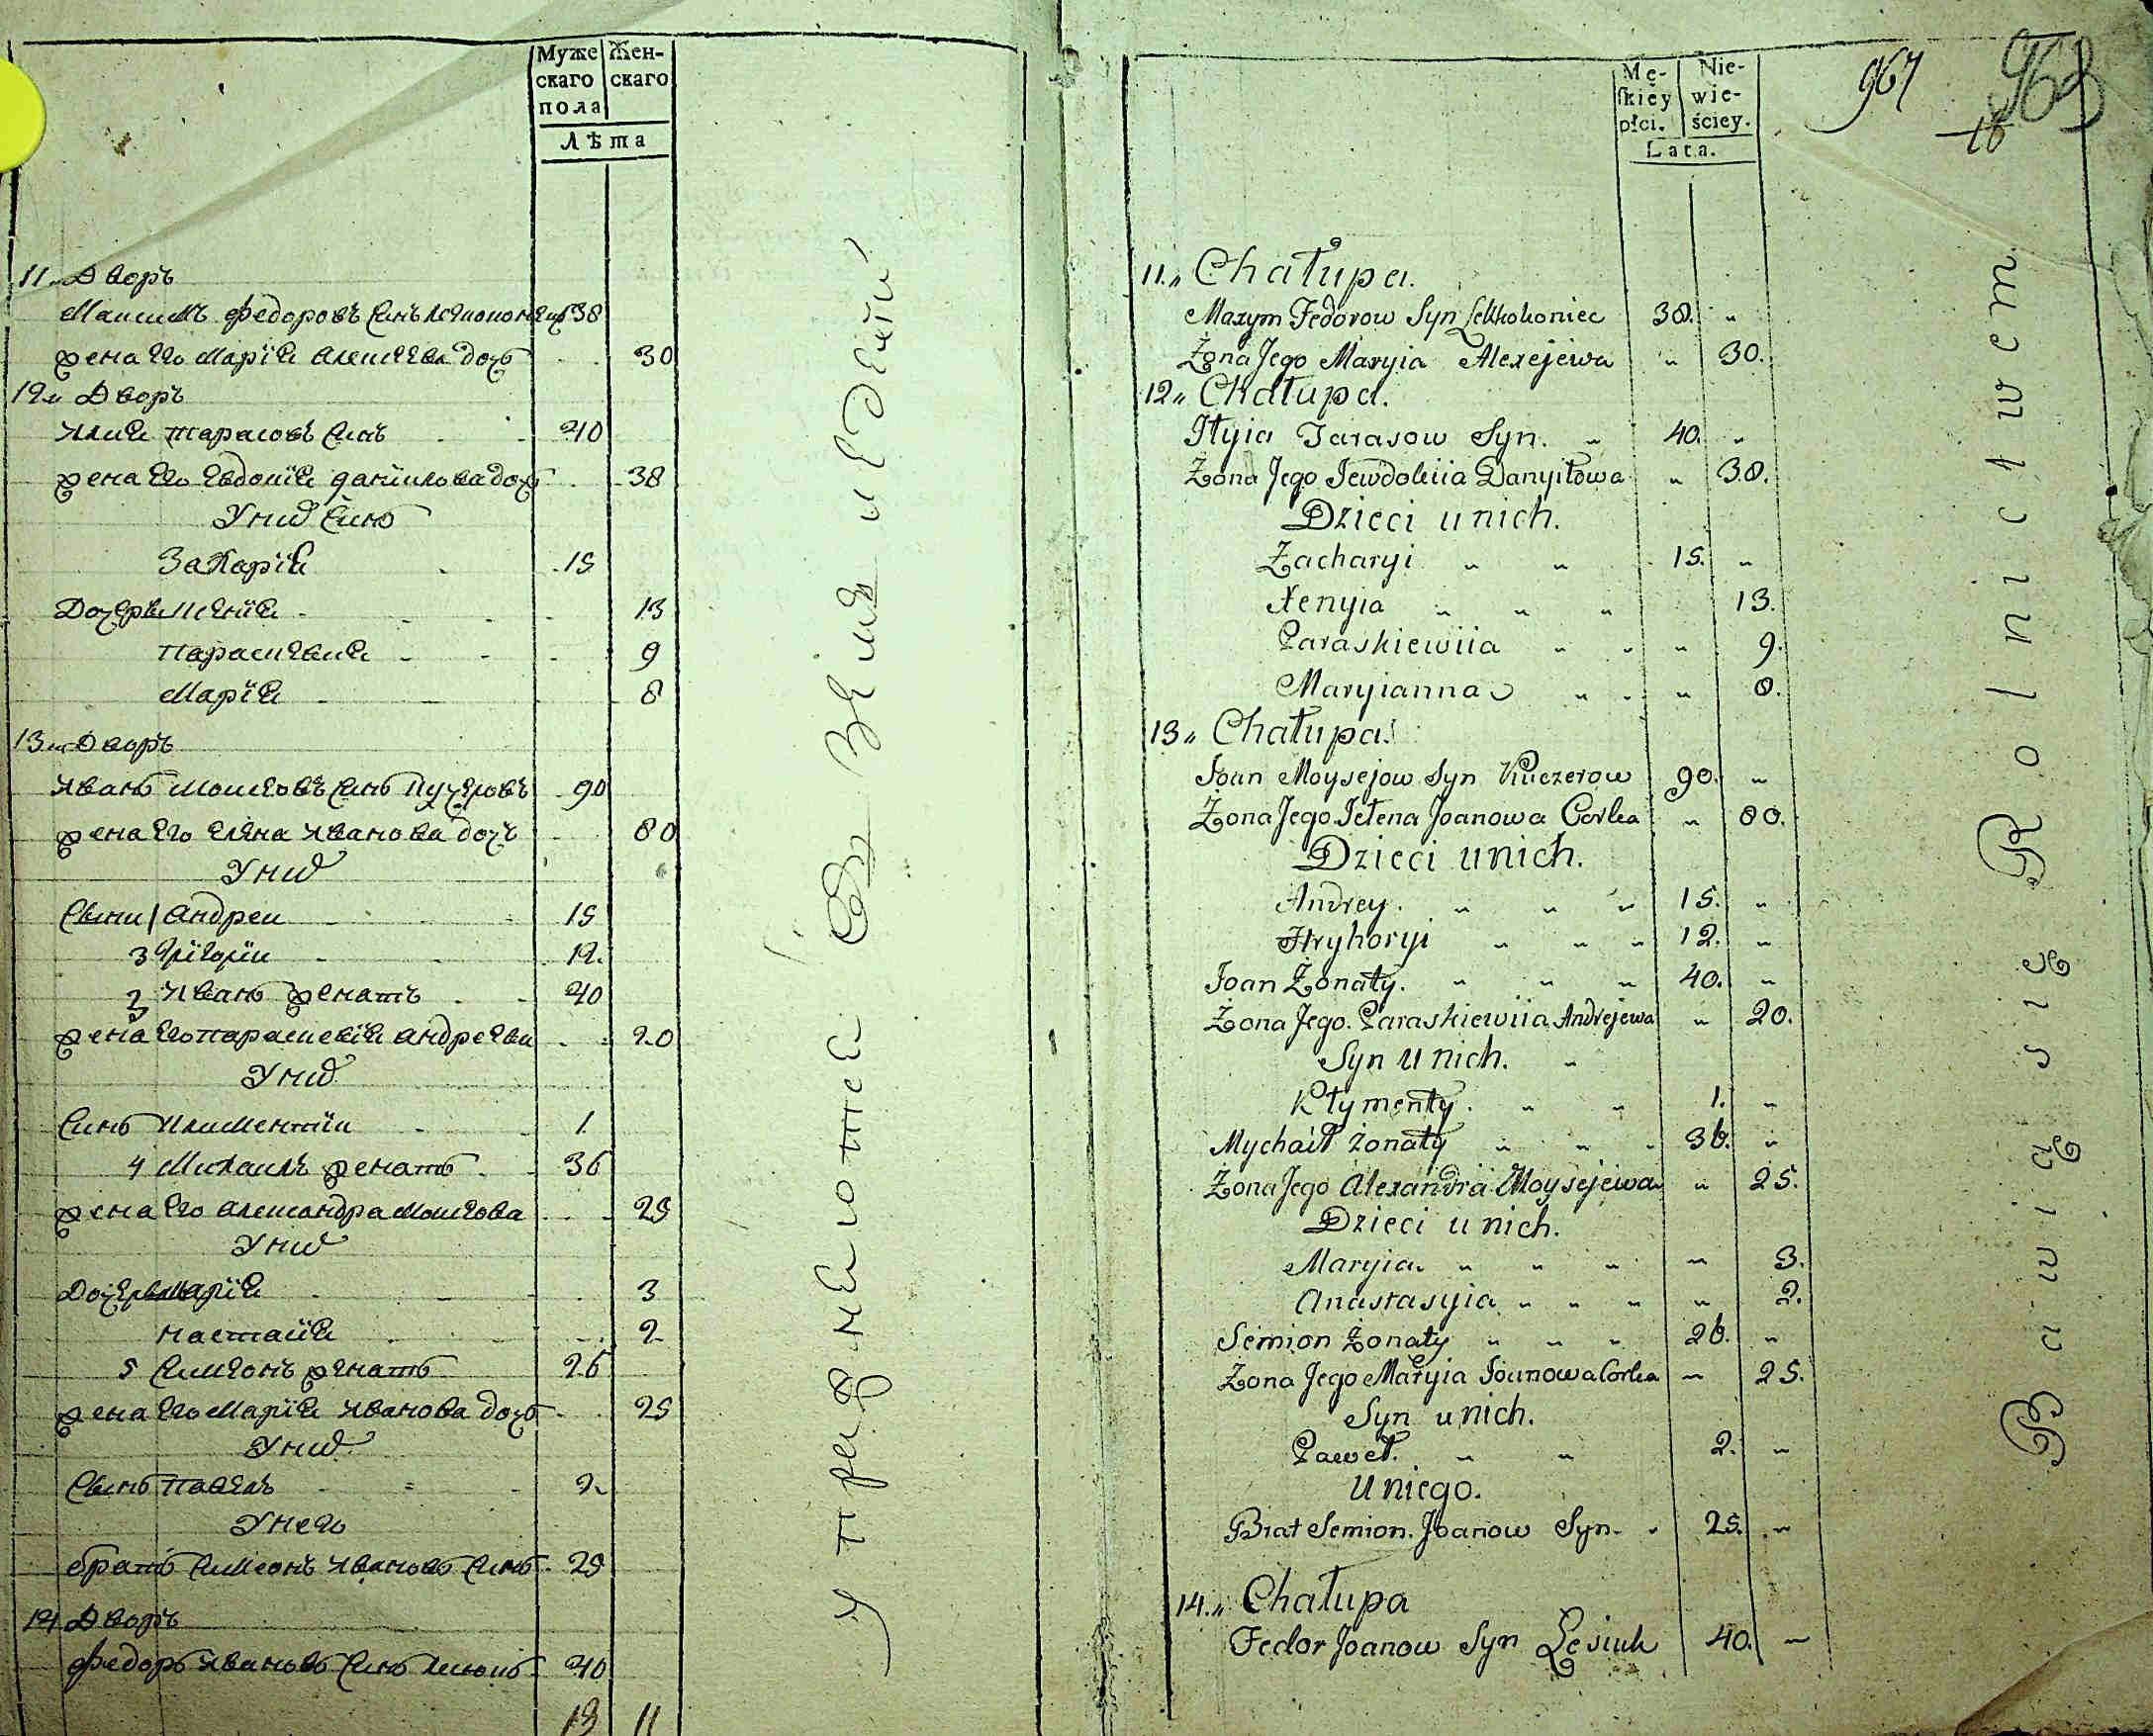 Муже
скаго
пола
Жен-
скаго
Лѣта
11 Дворъ
Максимъ Федоровъ Синъ 38
жена Его Марїя Алексѣева дочь 30
12 Дворъ
Илия Тарасовъ Синъ 40
жена Его Евдокїя Данїилова дочь 38
У них Синъ
Захарїя 15
Дочеры Ксенїя 13
Параскевия 9
Марїя 8
13 Дворъ
Иванъ Моисеовъ Синъ Кучеровъ 90
жена Его Елена Иванова дочъ 80
У них
Сыни Андреи 15
3 Григорїи 12
3 Иванъ женатъ 40
жена Его Параскевїя Андреева 20
У них
Синъ Климентїи 1
4 Михаилъ женатъ 36
жена Его Александра Моисеова 25
У них
Дочеры Марїя 3
Настасїя 2
5 Симеонъ женатъ 26
жена Его Марїя Иванова дочь 25
У них
Сынъ Павелъ 2
У него
братъ Симеонъ Ивановъ Синъ 25
14 Дворъ
Федоръ Ивановъ Синъ 40
18 11
Mę-
skiey
płci.
Nie-
wie-
ściey.
Lata.
967
968
10
11„ Chałupa.
Maxym Fedorow Syn 38. „
Żona Jego Maryia Alexejewa „ 30.
12„ Chałupa.
Iłyia Tarasow Syn. „ 40. „
Żona Jego Jewdokiia Danyiłowa „ 38.
Dzieci u nich.
Zacharyi „ „ 15. „
Xenyia „ „ „ 13.
Paraskiewiia „ „ „ 9.
Maryianna „ „ „ 8.
13„ Chałupa.
Joan Moysejow Syn Kuczerow 90. „
Żona Jego Jełena Joanowa Corka „ 80.
Dzieci u nich.
Andrey. „ „ „ 15. „
Hryhoryi „ „ „ 12. „
Joan Żonaty. „ „ „ 40. „
Żona Jego. Paraskiewiia Andrejewa „ 20.
Syn u nich. „
Kłymenty. „ „ 1. „
Mychaił żonaty „ „ „ 36. „
Żona Jego Alexandra Moysejewa „ 25.
Dzieci u nich.
Maryia. „ „ „ „ 3.
Anastasyia „ „ „ „ 2.
Semion żonaty „ „ „ 26. „
Żona Jego Maryia Joanowa Corka „ 25.
Syn u nich.
Paweł. „ „ 2. „
U niego.
Brat Semion. Joanow Syn. „ 25. „
14„ Chałupa
Fedor Joanow Syn Lesiuk 40. „
Bawią się Rolnictwem